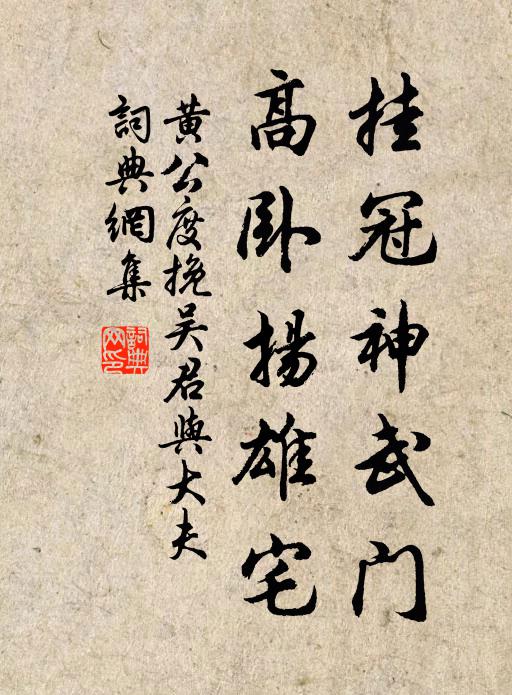 挂冠神武門
高卧揚雄宅
黄公度挽吴君與大夫
詞典網集
詞典網印